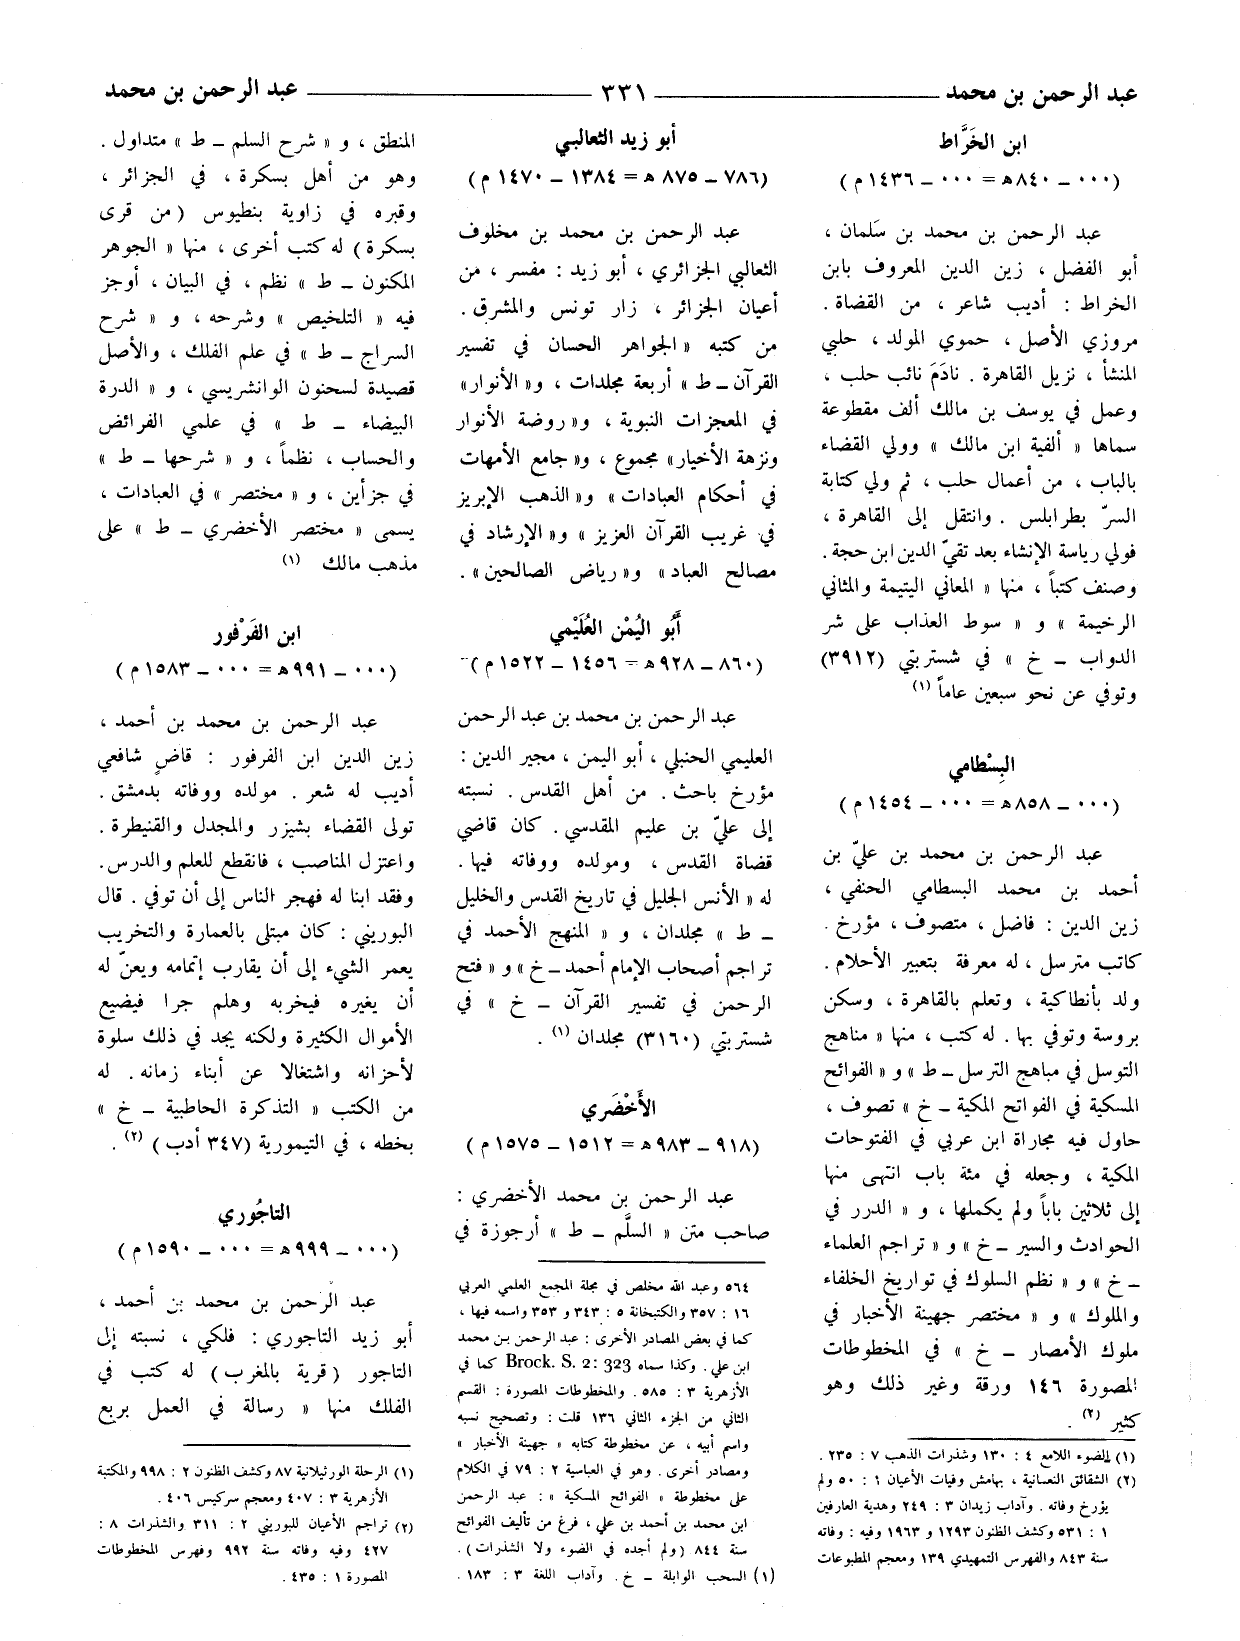 عبد الرحمن بن محمد ــــــ ٣٣١ ــــــ عبد الرحمن بن محمد
ابن الخَرَّاط
(٠٠٠ ــ ٨٤٠ هـ = ٠٠٠ ــ ١٤٣٦ م)
عبد الرحمن بن محمد بن سَلمان ،
أبو الفضل ، زين الدين المعروف بابن
الخراط : أديب شاعر ، من القضاة .
مروزي الأصل ، حموي المولد ، حلبي
المنشأ ، نزيل القاهرة . نادَمَ نائب حلب ،
وعمل في يوسف بن مالك ألف مقطوعة
سماها « ألفية ابن مالك » وولي القضاء
بالباب ، من أعمال حلب ، ثم ولي كتابة
السرّ بطرابلس . وانتقل إلى القاهرة ،
فولي رياسة الإنشاء بعد تقيّ الدين ابن حجة .
وصنف كتباً ، منها « المعاني اليتيمة والمثاني
الرخيمة » و « سوط العذاب على شر
الدواب ــ خ » في شستربتي (٣٩١٢)
وتوفي عن نحو سبعين عاماً (١)
البِسْطامي
(٠٠٠ ــ ٨٥٨ هـ = ٠٠٠ ــ ١٤٥٤ م)
عبد الرحمن بن محمد بن عليّ بن
أحمد بن محمد البسطامي الحنفي ،
زين الدين : فاضل ، متصوف ، مؤرخ .
كاتب مترسل ، له معرفة بتعبير الأحلام .
ولد بأنطاكية ، وتعلم بالقاهرة ، وسكن
بروسة وتوفي بها . له كتب ، منها « مناهج
التوسل في مباهج الترسل ــ ط » و « الفوائح
المسكية في الفواتح المكية ــ خ » تصوف ،
حاول فيه مجاراة ابن عربي في الفتوحات
المكية ، وجعله في مئة باب انتهى منها
إلى ثلاثين باباً ولم يكملها ، و « الدرر في
الحوادث والسير ــ خ » و « تراجم العلماء
ــ خ » و « نظم السلوك في تواريخ الخلفاء
والملوك » و « مختصر جهينة الأخبار في
ملوك الأمصار ــ خ » في المخطوطات
المصورة ١٤٦ ورقة وغير ذلك وهو
كثير (٢) .
(١) الضوء اللامع ٤ : ١٣٠ وشذرات الذهب ٧ : ٢٣٥ .
(٢) الشقائق النعمانية ، بهامش وفيات الأعيان ١ : ٥٠ ولم
يؤرخ وفاته . وآداب زيدان ٣ : ٢٤٩ وهدية العارفين
١ : ٥٣١ وكشف الظنون ١٢٩٣ و ١٩٦٣ وفيه : وفاته
سنة ٨٤٣ والفهرس التمهيدي ١٣٩ ومعجم المطبوعات
أبو زيد الثعالبي
(٧٨٦ ــ ٨٧٥ هـ = ١٣٨٤ ــ ١٤٧٠ م)
عبد الرحمن بن محمد بن مخلوف
الثعالبي الجزائري ، أبو زيد : مفسر ، من
أعيان الجزائر ، زار تونس والمشرق .
من كتبه « الجواهر الحسان في تفسير
القرآن ــ ط » أربعة مجلدات ، و« الأنوار»
في المعجزات النبوية ، و« روضة الأنوار
ونزهة الأخيار» مجموع ، و« جامع الأمهات
في أحكام العبادات » و« الذهب الإبريز
في غريب القرآن العزيز » و« الإرشاد في
مصالح العباد» و« رياض الصالحين» .
أَبُو اليُمْن العُلَيْمي
(٨٦٠ ــ ٩٢٨ هـ = ١٤٥٦ ــ ١٥٢٢ م)
عبد الرحمن بن محمد بن عبد الرحمن
العليمي الحنبلي ، أبو اليمن ، مجير الدين :
مؤرخ باحث . من أهل القدس . نسبته
إلى عليّ بن عليم المقدسي . كان قاضي
قضاة القدس ، ومولده ووفاته فيها .
له « الأنس الجليل في تاريخ القدس والخليل
ــ ط » مجلدان ، و « المنهج الأحمد في
تراجم أصحاب الإمام أحمد ــ خ » و « فتح
الرحمن في تفسير القرآن ــ خ » في
شستربتي (٣١٦٠) مجلدان (١) .
الأَخْضَري
(٩١٨ ــ ٩٨٣ هـ = ١٥١٢ ــ ١٥٧٥ م)
عبد الرحمن بن محمد الأخضري :
صاحب متن « السلَّم ــ ط » أرجوزة في
٥٦٤ وعبد الله مخلص في مجلة المجمع العلمي العربي
١٦ : ٣٥٧ والكتبخانة ٥ : ٣٤٣ و ٣٥٣ واسمه فيها ،
كما في بعض المصادر الأخرى : عبد الرحمن بن محمد
ابن علي . وكذا سماه Brock. S. 2: 323 كما في
الأزهرية ٣ : ٥٨٥ . والمخطوطات المصورة : القسم
الثاني من الجزء الثاني ١٣٦ قلت : وتصحيح نسبه
واسم أبيه ، عن مخطوطة كتابه « جهينة الأخبار »
ومصادر أخرى . وهو في العباسية ٢ : ٧٩ في الكلام
على مخطوطة « الفوائح المسكية » : عبد الرحمن
ابن محمد بن أحمد بن علي ، فرغ من تأليف الفوائح
سنة ٨٤٤ (ولم أجده في الضوء ولا الشذرات) .
(١) السحب الوابلة ــ خ . وآداب اللغة ٣ : ١٨٣ .
المنطق ، و « شرح السلم ــ ط » متداول .
وهو من أهل بسكرة ، في الجزائر ،
وقبره في زاوية بنطيوس (من قرى
بسكرة) له كتب أخرى ، منها « الجوهر
المكنون ــ ط » نظم ، في البيان ، أوجز
فيه « التلخيص » وشرحه ، و « شرح
السراج ــ ط » في علم الفلك ، والأصل
قصيدة لسحنون الوانشريسي ، و « الدرة
البيضاء ــ ط » في علمي الفرائض
والحساب ، نظماً ، و « شرحها ــ ط »
في جزأين ، و « مختصر » في العبادات ،
يسمى « مختصر الأخضري ــ ط » على
مذهب مالك (١)
ابن الفَرْفور
(٠٠٠ ــ ٩٩١ هـ = ٠٠٠ ــ ١٥٨٣ م)
عبد الرحمن بن محمد بن أحمد ،
زين الدين ابن الفرفور : قاضٍ شافعي
أديب له شعر . مولده ووفاته بدمشق .
تولى القضاء بشيزر والمجدل والقنيطرة .
واعتزل المناصب ، فانقطع للعلم والدرس .
وفقد ابنا له فهجر الناس إلى أن توفي . قال
البوريني : كان مبتلى بالعمارة والتخريب
يعمر الشيء إلى أن يقارب إتمامه ويعنّ له
أن يغيره فيخربه وهلم جرا فيضيع
الأموال الكثيرة ولكنه يجد في ذلك سلوة
لأحزانه واشتغالا عن أبناء زمانه . له
من الكتب « التذكرة الحاطبية ــ خ »
بخطه ، في التيمورية (٣٤٧ أدب ) (٢) .
التاجُوري
(٠٠٠ ــ ٩٩٩ هـ = ٠٠٠ ــ ١٥٩٠ م)
عبد الرحمن بن محمد بن أحمد ،
أبو زيد التاجوري : فلكي ، نسبته إلى
التاجور (قرية بالمغرب) له كتب في
الفلك منها « رسالة في العمل بربع
(١) الرحلة الورثيلانية ٨٧ وكشف الظنون ٢ : ٩٩٨ والمكتبة
الأزهرية ٣ : ٤٠٧ ومعجم سركيس ٤٠٦ .
(٢) تراجم الأعيان للبوريني ٢ : ٣١١ والشذرات ٨ :
٤٢٧ وفيه وفاته سنة ٩٩٢ وفهرس المخطوطات
المصورة ١ : ٤٣٥ .